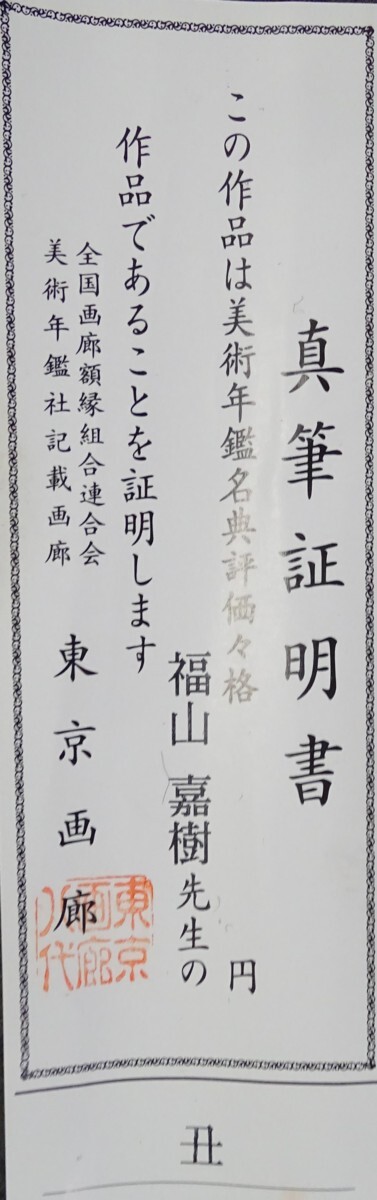 真筆証明書
この作品は美術年鑑名典評価々格 円
福山 嘉樹先生の
作品であることを証明します
全国画廊額縁組合連合会
美術年鑑社記載画廊
東京画廊
東京画廊
丑